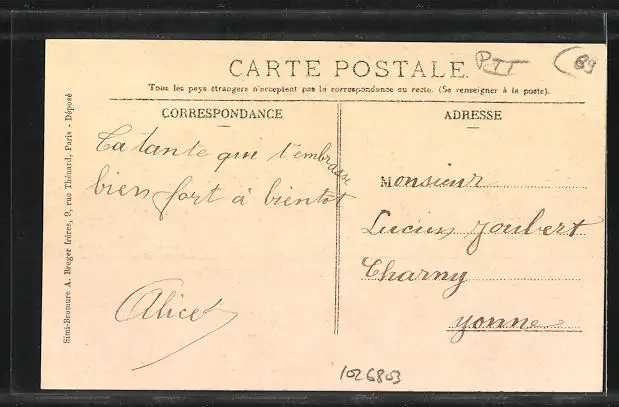 CARTE POSTALE.
PTT
89
Tous les pays étrangers n'acceptent pas la correspondance au recto. (Se renseigner à la poste).
CORRESPONDANCE
Ta tante qui t'embrasse
bien fort à bientôt
Alice
ADRESSE
Monsieur
Lucien Joubert
Charny
Yonne
1026803
Simi-Bromure A. Breger frères, 9, rue Thénard, Paris - Déposé